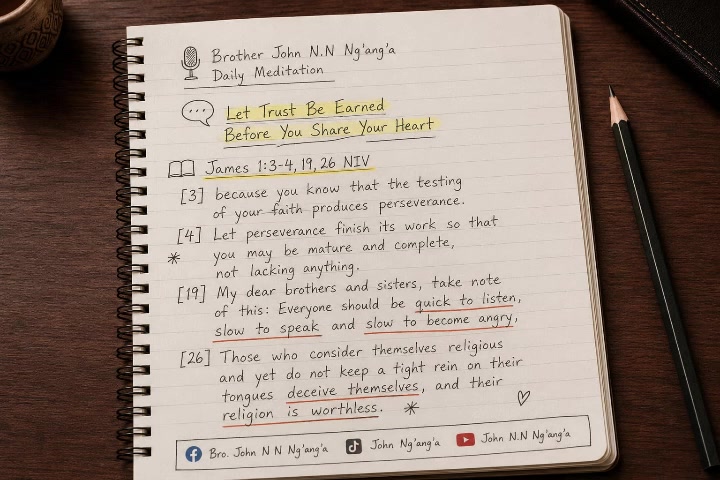 Brother John N.N Ng'ang'a
Daily Meditation
Let Trust Be Earned
Before You Share Your Heart
James 1:3-4, 19, 26 NIV
[3] because you know that the testing
of your faith produces perseverance.
[4] Let perseverance finish its work so that
you may be mature and complete,
not lacking anything.
[19] My dear brothers and sisters, take note
of this: Everyone should be quick to listen,
slow to speak and slow to become angry,
[26] Those who consider themselves religious
and yet do not keep a tight rein on their
tongues deceive themselves, and their
religion is worthless.
Bro. John N N Ng'ang'a John Ng'ang'a John N.N Ng'ang'a